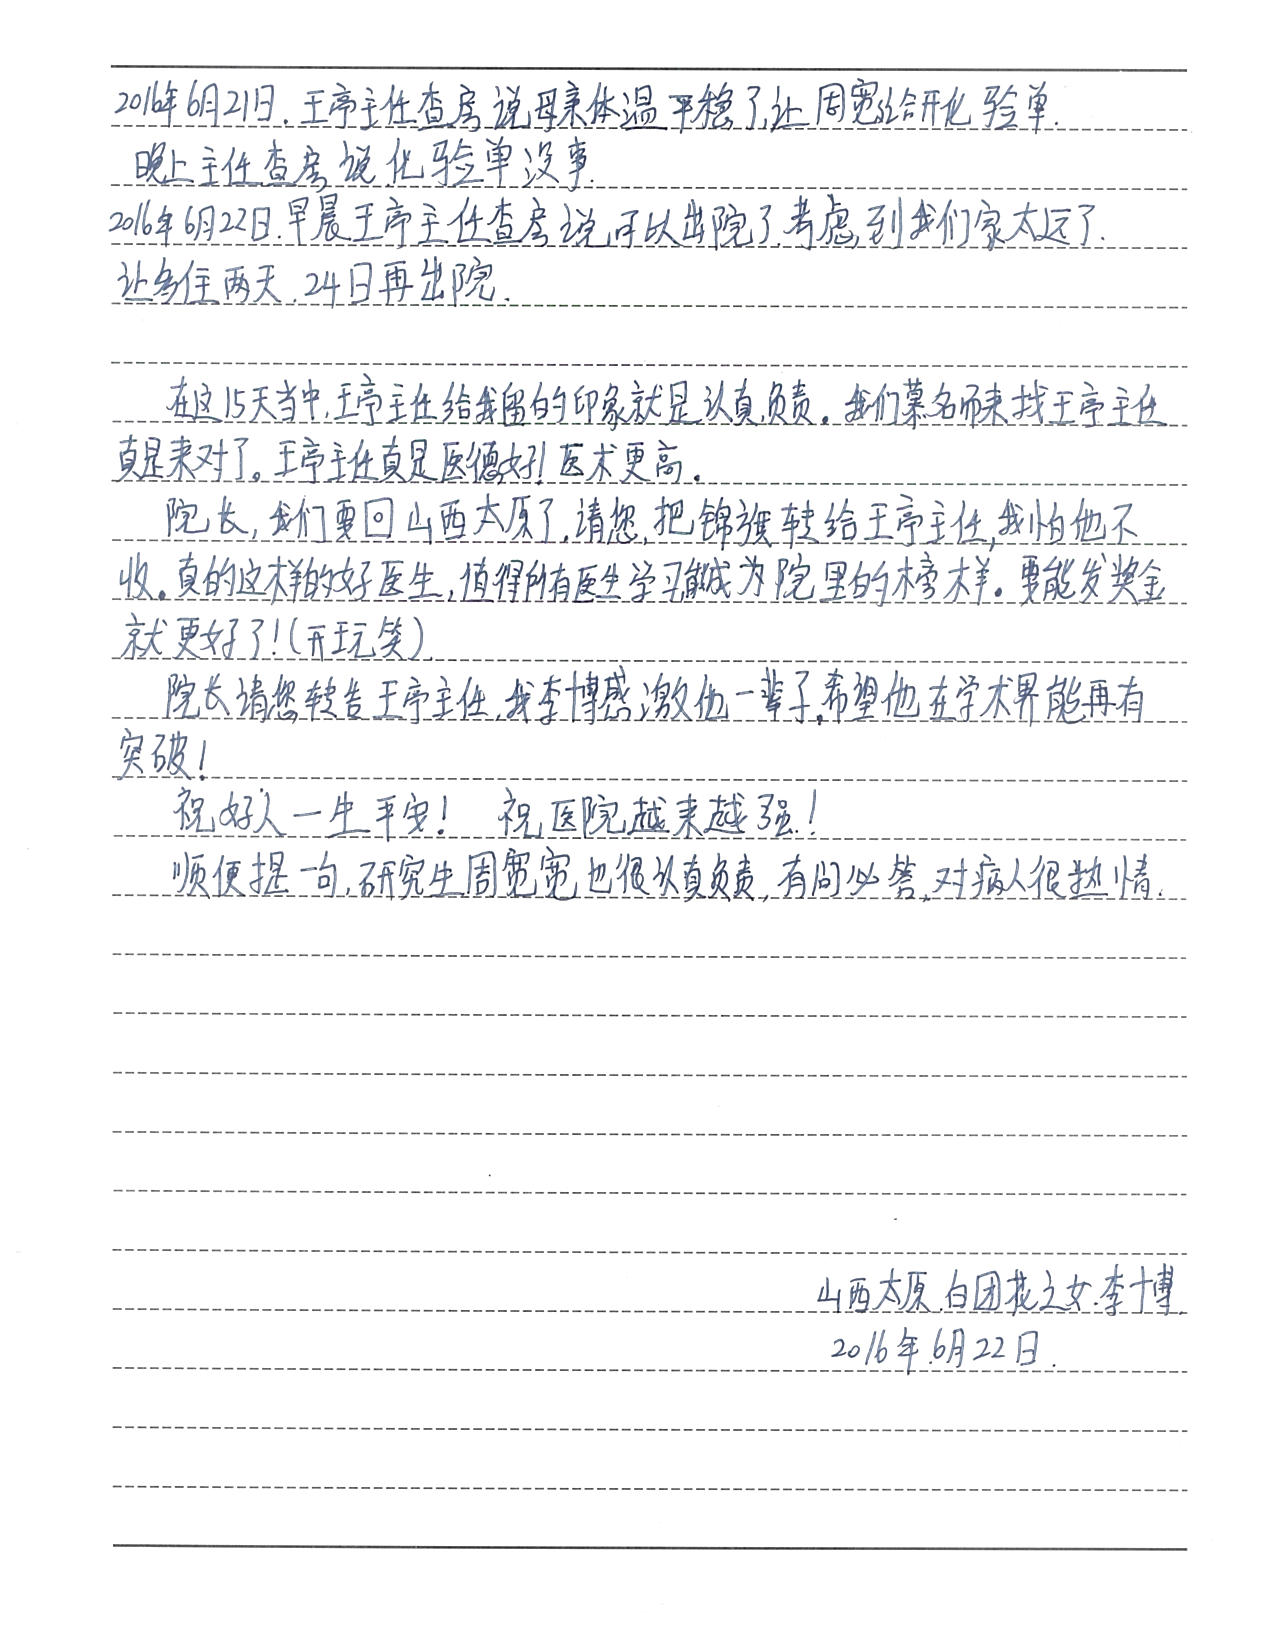 2016年6月21日.王亭主任查房说母亲体温平稳了,让周宽给开化验单.
晚上主任查房说化验单没事.
2016年6月22日.早晨王亭主任查房说可以出院了.考虑到我们家太远了.
让多住两天.24日再出院.
在这15天当中,王亭主任给我留的印象就是认真负责。我们慕名而来找王亭主任
真是来对了。王亭主任真是医德好!医术更高.
院长,我们要回山西太原了,请您把锦旗转给王亭主任,我怕他不
收。真的这样的好医生,值得所有医生学习,能成为院里的榜样。要能发奖金
就更好了!(开玩笑)
院长请您转告王亭主任,我李博感激他一辈子,希望他在学术界能再有
突破!
祝好人一生平安! 祝医院越来越强!
顺便提一句,研究生周宽宽也很认真负责,有问必答,对病人很热情.
山西太原.白团花之女.李博.
2016年.6月22日.